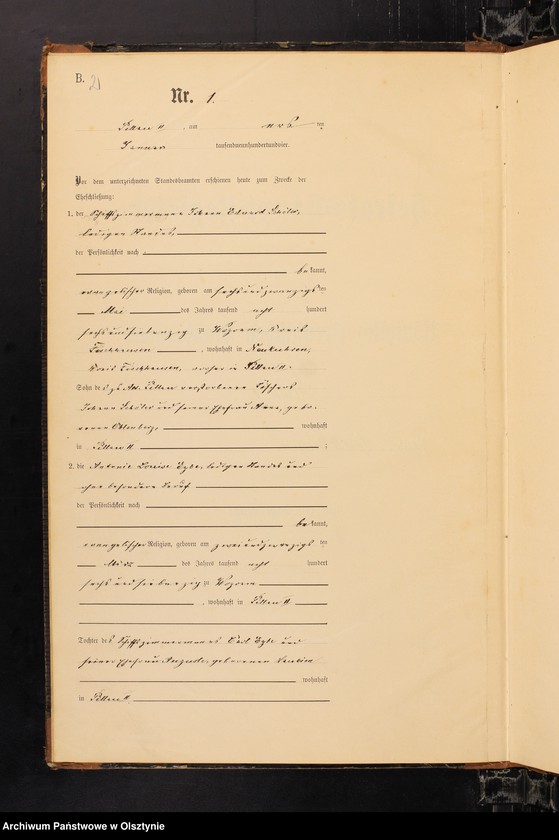 B.
21
Nr. 1.
Pillau II, am ten
Januar tausendneunhundertundvier.
Vor dem unterzeichneten Standesbeamten erschienen heute zum Zwecke der
Eheschließung:
1. der Schiffszimmermann Johann Eduard
ledigen Standes,
der Persönlichkeit nach
bekannt,
evangelischer Religion, geboren am sechsundzwanzigsten
Mai des Jahres tausend acht hundert
sechsundsiebenzig zu Wogram, Kreis
Fischhausen, wohnhaft in
Kreis Fischhausen, vorher in Pillau II.
Sohn des zu Alt Pillau verstorbenen Fischers
Johann und seiner Ehefrau, gebo-
renen wohnhaft
in Pillau II;
2. die Antonie Louise, ledigen Standes und
ohne besonderen Beruf
der Persönlichkeit nach
bekannt,
evangelischer Religion, geboren am zweiundzwanzigsten
März des Jahres tausend acht hundert
sechsundsiebenzig zu Wogram
, wohnhaft in Pillau II
Tochter des Schiffszimmermanns Carl und
seiner Ehefrau Auguste, geborenen
wohnhaft
in Pillau II
Archiwum Państwowe w Olsztynie